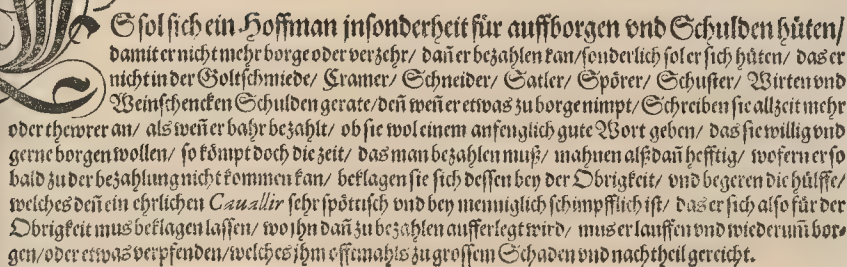 ES sol sich ein Hoffman insonderheit für auffborgen vnd Schulden hüten/
damit er nicht mehr borge oder verzehr/ dañ er bezahlen kan/ sonderlich sol er sich hüten/ das er
nicht in der Goltschmiede/ Cramer/ Schneider/ Satler/ Spörer/ Schuster/ Wirten vnd
Weinschencken Schulden gerate/ deñ weñ er etwas zu borge nimpt/ Schreiben sie allzeit mehr
oder thewrer an/ als weñ er bahr bezahlt/ ob sie wol einem anfenglich gute Wort geben/ das sie willig vnd
gerne borgen wollen/ so kömpt doch die zeit/ das man bezahlen muß/ mahnen alßdañ hefftig/ wofern er so
bald zu der bezahlung nicht kommen kan/ beklagen sie sich dessen bey der Obrigkeit/ vnd begeren die hülffe/
welches deñ ein ehrlichen Cauallir sehr spöttisch vnd bey menniglich schimpfflich ist/ das er sich also für der
Obrigkeit mus beklagen lassen/ wo ihn dañ zu bezahlen aufferlegt wird/ mus er lauffen vnd wiederum̃ bor-
gen/ oder etwas verpfenden/ welches ihm offtmahls zu grossem Schaden vnd nachtheil gereicht.